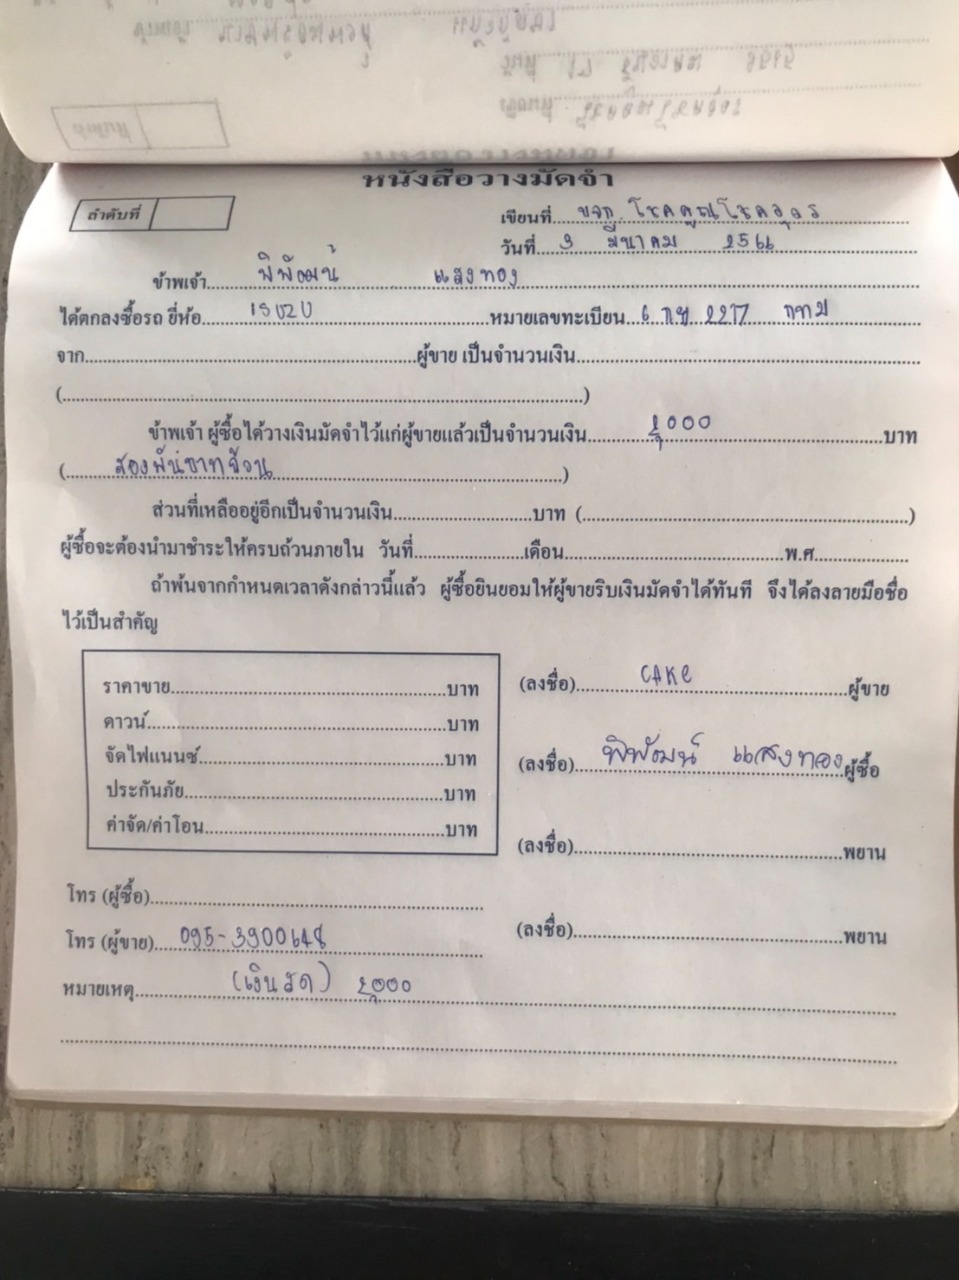 หนังสือวางมัดจำ
ลำดับที่
เขียนที่ บจก. โชคคูณโชคอุดร
วันที่ 3 มีนาคม 2566
ข้าพเจ้า พิพัฒน์ แสงทอง
ได้ตกลงซื้อรถ ยี่ห้อ ISUZU หมายเลขทะเบียน 6 กษ 2217 กทม
จาก ผู้ขาย เป็นจำนวนเงิน
( )
ข้าพเจ้า ผู้ซื้อได้วางเงินมัดจำไว้แก่ผู้ขายแล้วเป็นจำนวนเงิน 2,000 บาท
(สองพันบาทถ้วน)
ส่วนที่เหลืออยู่อีกเป็นจำนวนเงิน บาท ( )
ผู้ซื้อจะต้องนำมาชำระให้ครบถ้วนภายใน วันที่ เดือน พ.ศ.
ถ้าพ้นจากกำหนดเวลาดังกล่าวนี้แล้ว ผู้ซื้อยินยอมให้ผู้ขายริบเงินมัดจำได้ทันที จึงได้ลงลายมือชื่อ
ไว้เป็นสำคัญ
ราคาขาย บาท
ดาวน์ บาท
จัดไฟแนนซ์ บาท
ประกันภัย บาท
ค่าจัด/ค่าโอน บาท
(ลงชื่อ) CAKE ผู้ขาย
(ลงชื่อ) พิพัฒน์ แสงทอง ผู้ซื้อ
(ลงชื่อ) พยาน
(ลงชื่อ) พยาน
โทร (ผู้ซื้อ)
โทร (ผู้ขาย) 095-3900648
หมายเหตุ (เงินสด) 2,000